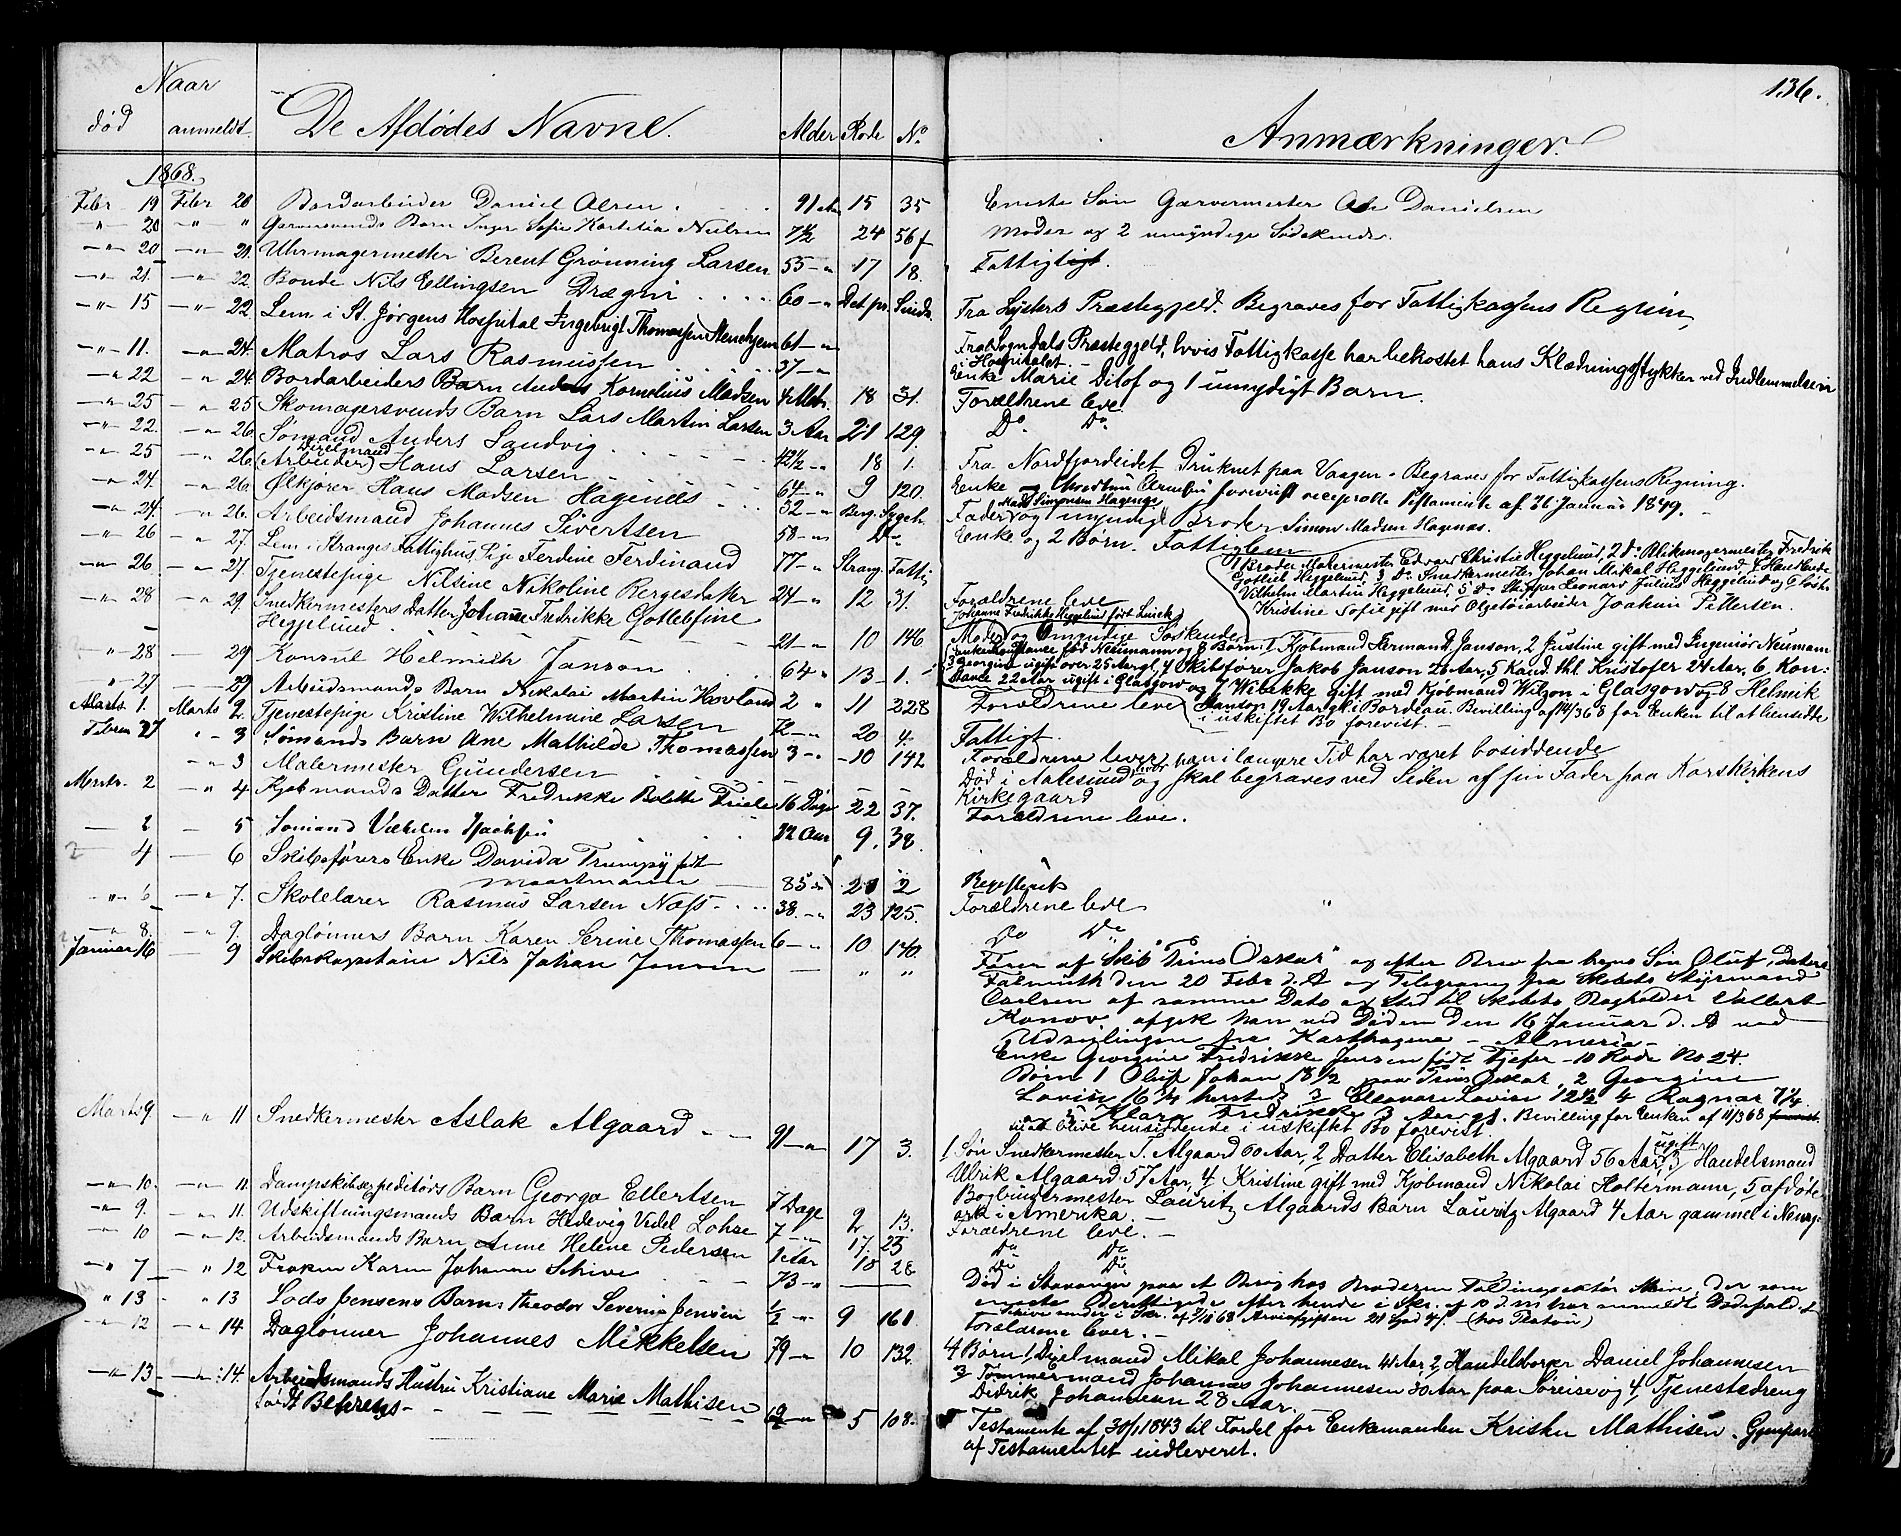 136.
Naar
død anmeldt De Afdødes Navne. Alder Rode No Anmærkninger.
1868.
Febr 19 Febr 20 Bordarbeider Daniel Olsen 91 Aar 15 35 Eneste Søn Garvermester Ole Danielsen
20 " Garversvends Barn Inger Sofie Nielsen 7½ 24 56 f Moder og 2 umyndige Sødskende.
20 21. Uhrmagermester Berent Grønning Larsen 55 17 18. Fattigt.
21. 22. Bonde Nils Ellingsen Drægni 60 Det pr. Fra Lysters Præstegjeld. Begraves for Fattigkassens Regning
15 22. Lem i St. Jørgens Hospital Ingebrigt Thomassen 61 Fra Sogndals Præstegjeld, hvis Fattigkasse har bekostet hans Klædningsstykker ved Indlemmelsen i
Hospitalet.
11. 24. Matros Lars Rasmussen 37 Enke Marie Ditlof og 1 umyndigt Barn.
22 24. Bordarbeiders Barn Anders Kornelius Madsen 4 Mdr. 18 31. Forældrene leve
25 25 Skomagersvends Barn Lars Martin Larsen 3 Aar 21 129. Do Do
22. 26. Sømand Anders Sandvig 42½ 18 1. Fra Nordfjordeidet Druknet paa Vaagen. Begraves for Fattigkassens Regning.
25 26. (Arbeider) Hans Larsen 64 9 120. Enke forevist reciprokke Testamente af 26 Januar 1849.
24. 26. Ølkjører Hans Madsen Hagenæs 32 Berg. Sygeh. Fader og 1 umyndig Broder Simon Madsen Hagenæs.
24. 26. Arbeidsmand Johannes Sivertsen 58 Do Enke og 2 Børn. Fattiglem
26 27. Lem i Stranges Fattighus, Pige Ferdine Ferdinand 77 Strang. Fattig
26. 27. Tjenestepige Nilsine Nikoline Bergesdatter 24 12 31. Forældrene leve
1 Broder Malermester Edvard Christie Heggelund, 2 do Blikmagermester Fredrik
Gotlieb Heggelund, 3 Do Snedkermester Johan Mikal Heggelund, 4 Handlende
Vilhelm Martin Heggelund, 5 Do Skipper Leonard Julius Heggelund og 6 Søster
Kristine Sofie gift med Olgetøiarbeider Joakim Pettersen.
28 29. Snedkermesters Datter Johanne Fredrikke Gotlebfine
Heggelund 21 10 146 Moder og 6 myndige Søskende
28 29 Konsul Helmich Janson 64 13 1. 8 Børn: 1 Kjøbmand Hermand Janson, 2 Justine gift med Ingeniør Neumann
3 Georgine ugift over 25 Aar gl, 4 Skibsfører Jakob Janson 26 Aar, 5 Kand. thl. Kristofer 24 Aar, 6 Kon-
stance 22 Aar ugift i Glasgow og 7 Wibekke gift med Kjøbmand Wilson i Glasgow og 8 Helmik
Janson 19 Aar gl. i Bordeau. Bevilling af 14/3 68 for Enken til at hensidde
i uskiftet Bo forevist.
27 29 Arbeidsmands Barn Nikolai Martin Hovland 2 11 228 Forældrene leve
Marts 1. Marts 2. Tjenestepige Kristine Wilhelmine Larsen 72 20 4. Fattigt.
Febru 27 3 Sømands Barn Ane Mathilde Thomassen 3 10 142 Forældrene lever
3 Malermester Gundersen Død i Aalesund hvor han i længere Tid har været bosiddende
og skal begraves ved Siden af sin Fader paa Korskirkens
Kirkegaard
Marts. 2 4 Kjøbmands Datter Fredrikke Bolette Friele 16 Dage 22 37. Forældrene leve.
2 5 Sømand Vilhelm 22 Aar 9. 38.
4 6 Skibsførers Enke Davida Trumpy født
85 20 2
6 7. Skolelærer Rasmus Larsen Næss 38 23 125. Forældrene leve
8. 9. Dagløners Barn Karen Serine Thomassen 6 10 140. Do Do
Januar 16 9 Skibskaptain Nils Johan Jensen " " Fører af Skib "Trine Oskar" og efter Brev fra hans Søn Oluf, dateret
Falmuth den 20 Febr d. A og Telegram fra Skibets Styrmand
Carlsen af samme Dato og Sted til Skibets Rægholder Ellert
Konov, afgik han ved Døden den 16 Januar d. A ved
Udseilingen fra Karthagena - Almeria
Enke Georgine Fredrikke Jensen født Fjefer - 10 Rode No 24.
Børn 1 Oluf Johan 18½ paa Trine Oskar, 2 Georgine
Lovise 16¾ hersteds 3 Eleonore Lovise 12½ 4 Ragnar 7¼
og 5 Klara Fredrikke 3 Aar gl. Bevilling for Enken af 11/3 68
at blive hensiddende i uskiftet Bo forevist
Marts 9 11 Snedkermester Aslak Algaard 91 17 3. 1 Søn Snedkermester T. Algaard 60 Aar, 2 Datter Elisabeth Algaard 56 Aar ugift, 3 Handelsmand
Ulrik Algaard 57 Aar, 4 Kristine gift med Kjøbmand Nikolai Holtermann, 5 afdøde
Bogbindermester Lauritz Algaards Barn Lauritz Algaard 4 Aar gammel i Newy-
ork i Amerika.
10. 11 Dampskibsexpeditørs Barn Georga Ellertsen 7 Dage 2 13. Forældrene leve.
9. 11. Udskiftningsmands Barn Hedevig Vedel Lohse 7 17. 25 Do Do
10 12. Arbeidsmands Barn Anne Helene Pedersen 1 Aar 10 28 Do Do
7 12 Frøken Karen Johanne Schive 73 Død i Stavanger paa et Besøg hos Broderen Toldinspektør Schive, der som
eneste Berettigede efter hende i Skr. af 10 d.m har anmeldt Dødsfaldet
13 13 Lods Jensens Barn: Theodor Severin Jensen ½ 9 161. Forældrene lever.
12 14 Dagløner Johannes Mikkelsen 79 10 132. 4 Børn 1, Dixelmand Mikal Johannesen 41 Aar 2, Handelsborger Daniel Johannesen
3 Tømmermand Johannes Johannesen 30 Aar paa Søreise og 4, Tjenestedreng
Didrik Johannesen 28 Aar.
13 14. Arbeidsmands Hustru Kristiane Marie Mathisen
født Behrens 5 108. Testamente af 30/1 1843 til Fordel for Enkemanden Krister Mathisen. Gjenpart
af Testamentet indleveret.